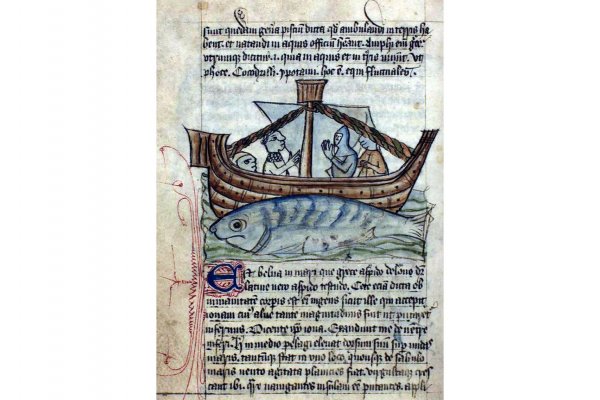 sunt quedam gen̄a pisciū dicta qđ ambulandi in terris ha
bent. et natandi in aquis officiū hn̄t. Amphi em̄
dicitur .i. quia in aquis et in tr̄is uiuūt. vt
phoce. Cocodrilli. ypotami. hoc ē. equi fluctuales.
Est belua in mari que grece aspido delone dr̄
latine vero aspido testudo. Cete eciā dicta ob
inmanitatem corpis est em̄ ingens sicut ille qui excepit
ionam cuiꝰ alue tante magnitudinis fuit ut putaret
infernus. Dicente ipō iona. Exaudiuit me de uentre
inferi. in medio pelagi eleuat dorsum suū sup undas
maris. stat in uno loco. quousque de sabulo
maris vento agitata planicies fiat. cres
cant ibi. nauigantes insulam eē putantes. appli